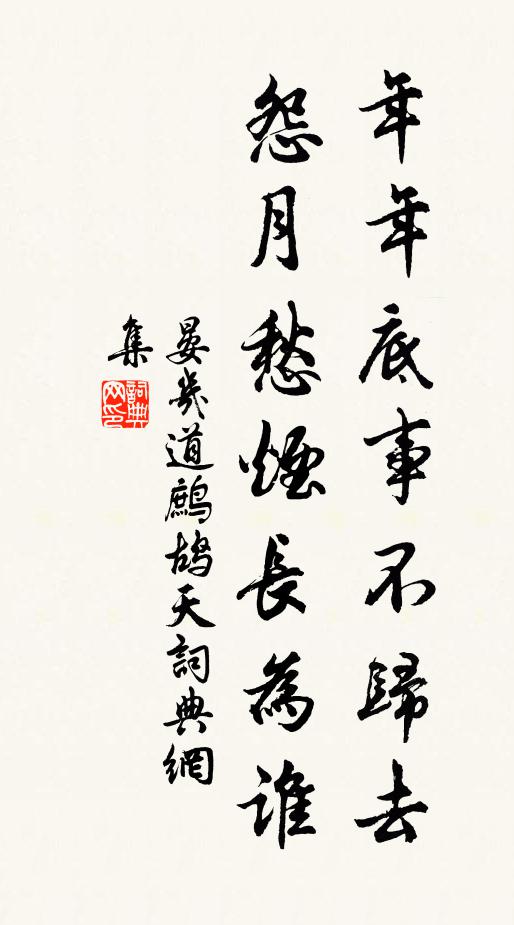 年年底事不歸去
怨月愁煙長為誰
晏幾道鷓鴣天詞典網
集
詞典網印